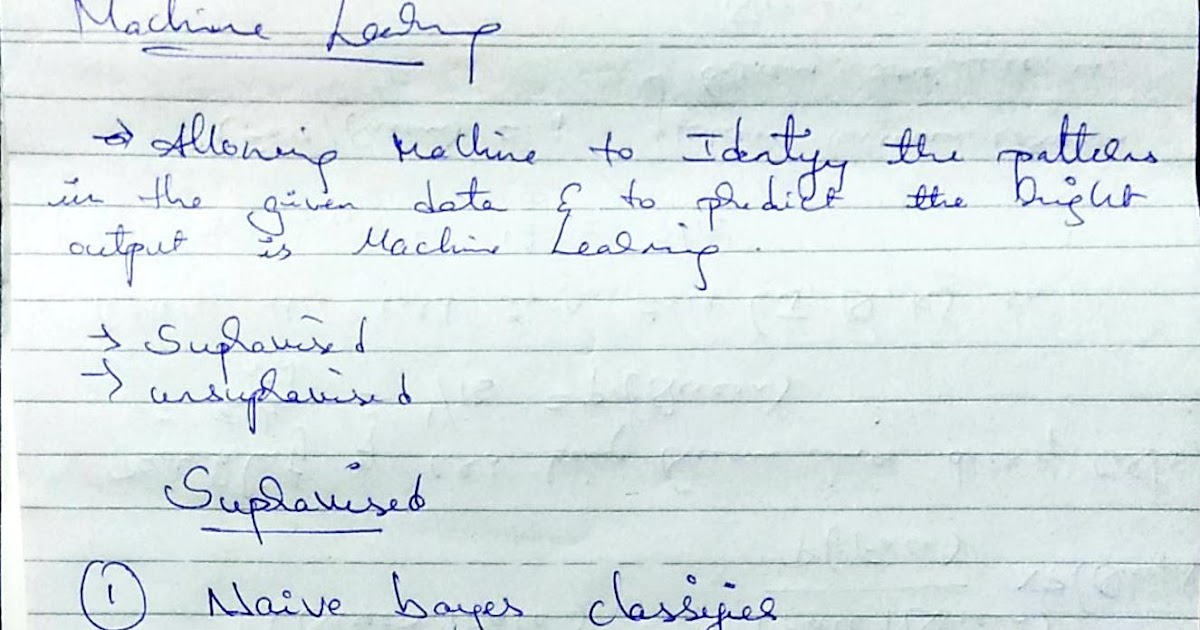 Machine Learning
→ Allowing Machine to Identify the patterns
in the given data & to predict the bright
output is Machine Learning.
→ Supravised
→ unsupravised
Supravised
① Naive bayes classifier